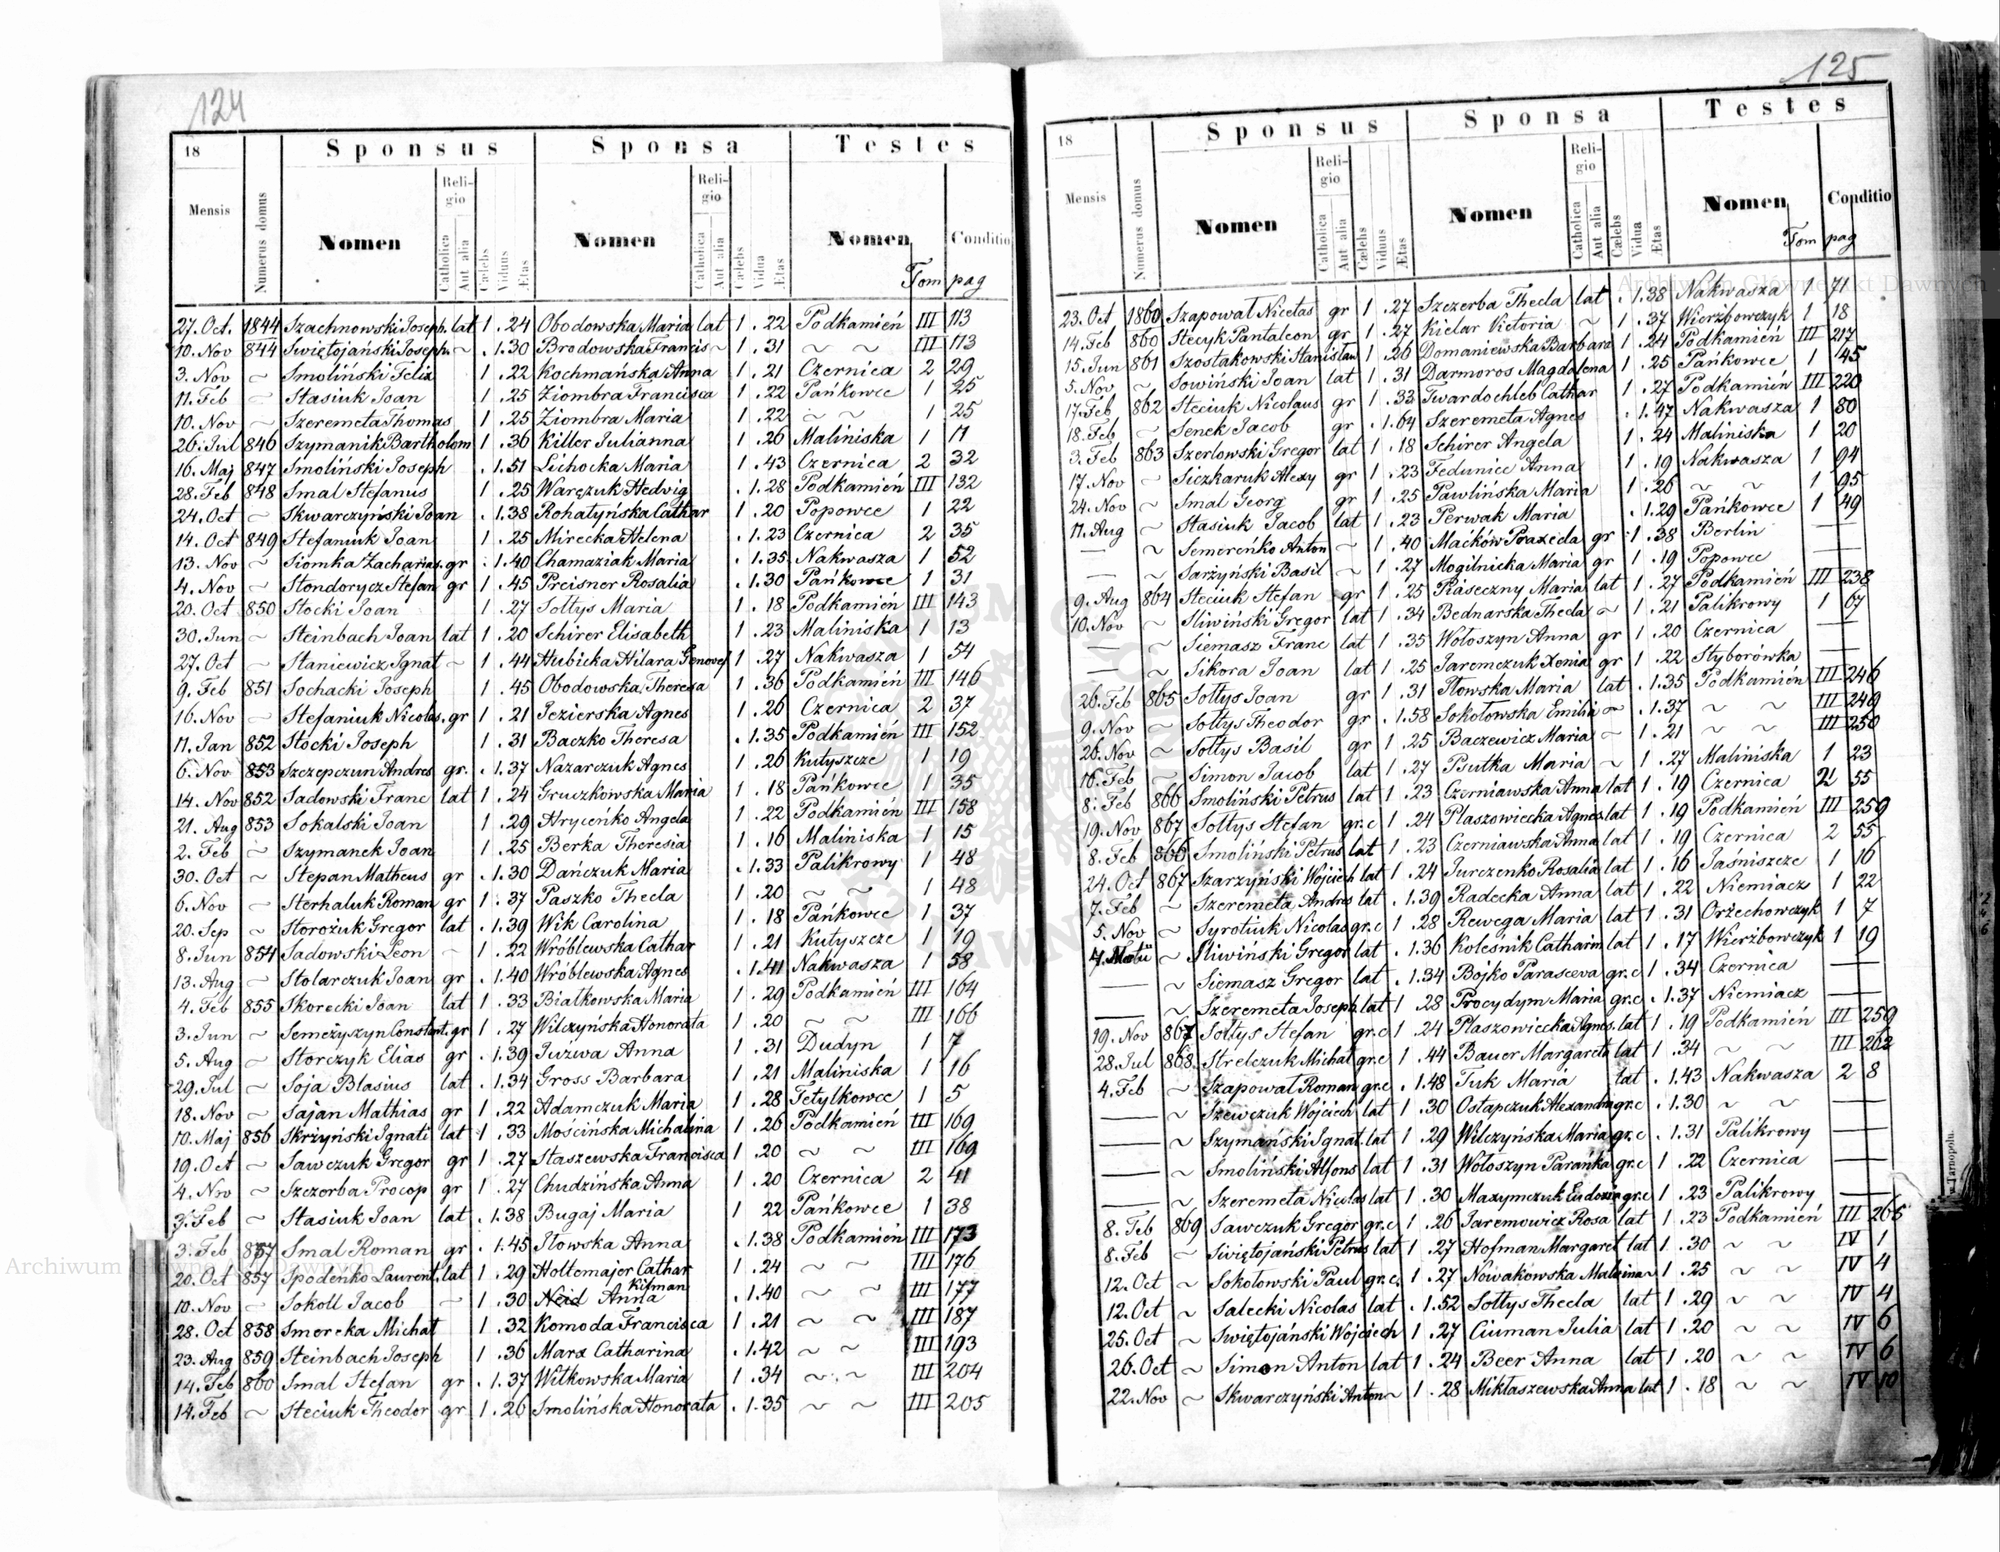 124
18 Sponsus Sponsa Testes
Mensis Numerus domus Nomen Religio Catholica Aut alia Cælebs Viduus Ætas Nomen Religio Catholica Aut alia Cælebs Vidua Ætas Nomen Conditio
Tom pag
27. Oct. 1844 Szachnowski Joseph. lat 1 . 24 Obodowska Maria lat 1 . 22 Podkamień III 113
10. Nov 844 Świętojański Joseph. ~ . 1. 30 Brodowska Francis ~ 1 . 31 ~ ~ III 113
3. Nov ~ Smoliński Felix 1 . 22 Kochmańska Anna 1 . 21 Czernica 2 29
11. Feb ~ Stasiuk Joan 1 . 25 Ziombra Francisca 1 . 22 Pańkowce 1 25
10. Nov ~ Szeremeta Thomas 1 . 25 Ziombra Maria 1 . 22 ~ ~ 1 25
26. Jul 846 Szymanik Bartholom 1 . 36 Killer Julianna 1 . 26 Maliniska 1 11
16. Maj 847 Smoliński Joseph . 1. 51 Lichocka Maria 1 . 43 Czernica 2 32
28. Feb 848 Smal Stefanus 1 . 25 Waręzuk Hedvig . 1. 28 Podkamień III 132
24. Oct ~ Skwarczyński Joan . 1. 38 Rohatyńska Cathar 1 . 20 Popowce 1 22
14. Oct 849 Stefaniuk Joan 1 . 25 Mirecka Helena . 1. 23 Czernica 2 35
13. Nov ~ Siomka Zacharias. gr . 1. 40 Chamaziak Maria . 1. 35 Nakwasza 1 52
4. Nov ~ Stondorycz Stefan gr 1 . 45 Preisner Rosalia . 1. 30 Pańkowce 1 31
20. Oct 850 Stocki Joan 1 . 27 Sołtys Maria 1 . 18 Podkamień III 143
30. Jun ~ Steinbach Joan lat 1 . 20 Schirer Elisabeth 1 . 23 Maliniska 1 13
27. Oct ~ Staniewicz Ignat ~ 1 . 44 Hubicka Hilara Genovef 1 . 27 Nakwasza 1 54
9. Feb 851 Sochacki Joseph 1 . 45 Obodowska Theresa 1 . 36 Podkamień III 146
16. Nov ~ Stefaniuk Nicolas. gr 1 . 21 Jezierska Agnes 1 . 26 Czernica 2 37
11. Jan 852 Stocki Joseph 1 . 31 Baczko Theresa . 1. 35 Podkamień III 152
6. Nov 853 Szczepczun Andres gr. . 1. 37 Nazarczuk Agnes 1 . 26 Kutyszcze 1 19
14. Nov 852 Sadowski Franc lat 1 . 24 Gruczkowska Maria 1 . 18 Pańkowce 1 35
21. Aug 853 Sokalski Joan 1 . 29 Hryceńko Angela 1 . 22 Podkamień III 158
2. Feb ~ Szymanek Joan 1 . 25 Berka Theresia 1 . 16 Maliniska 1 15
30. Oct ~ Stepan Matheus gr . 1. 30 Dańczuk Maria . 1. 33 Palikrowy 1 48
6. Nov ~ Sterhaluk Roman gr 1 . 37 Paszko Thecla 1 . 20 ~ ~ 1 48
20. Sep ~ Storożuk Gregor lat . 1. 39 Wik Carolina 1 . 18 Pańkowce 1 37
8. Jun 854 Sadowski Leon ~ 1 . 22 Wróblewska Cathar 1 . 21 Kutyszcze 1 19
13. Aug ~ Stolarczuk Joan gr . 1. 40 Wróblewska Agnes . 1. 41 Nakwasza 1 58
4. Feb 855 Skorecki Joan lat 1 . 33 Białkowska Maria 1 . 29 Podkamień III 164
3. Jun ~ Semeżyszyn Constant. gr 1 . 27 Wilczyńska Honorata 1 . 20 ~ ~ III 166
5. Aug ~ Storczyk Elias gr . 1. 39 Juźwa Anna 1 . 31 Dudyn 1 7
29. Jul ~ Soja Blasius lat . 1. 34 Gross Barbara 1 . 21 Maliniska 1 16
18. Nov ~ Sajan Mathias gr 1 . 22 Adamczuk Maria 1 . 28 Tetylkowce 1 5
10. Maj 856 Skrżyński Ignati lat 1 . 33 Mościńska Michalina 1 . 26 Podkamień III 169
19. Oct ~ Sawczuk Gregor gr 1 . 27 Staszewska Francisca 1 . 20 ~ ~ III 169
4. Nov ~ Szczerba Procop gr 1 . 27 Chudzińska Anna 1 . 20 Czernica 2 41
3. Feb ~ Stasiuk Joan lat . 1. 38 Bugaj Maria 1 22 Pańkowce 1 38
3. Feb 857 Smal Roman gr . 1. 45 Stowska Anna . 1. 38 Podkamień III 173
20. Oct 857 Spodenko Laurent. lat 1 . 29 Holtemajer Cathar 1 . 24 ~ ~ III 176
10. Nov ~ Sokoll Jacob ~ 1 . 30 Kifman Anna . 1. 40 ~ ~ III 177
28. Oct 858 Smereka Michał 1 . 32 Komoda Francisca 1 . 21 ~ ~ III 187
23. Aug 859 Steinbach Joseph 1 . 36 Marx Catharina . 1. 42 ~ ~ III 193
14. Feb 860 Smal Stefan gr . 1. 37 Witkowska Maria 1 . 34 ~ ~ III 204
14. Feb ~ Steciuk Theodor gr 1 . 26 Smolińska Honorata . 1. 35 ~ ~ III 205
125
18 Sponsus Sponsa Testes
Mensis Numerus domus Nomen Religio Catholica Aut alia Cælebs Viduus Ætas Nomen Religio Catholica Aut alia Cælebs Vidua Ætas Nomen Conditio
Tom pag
23. Oct 1860 Szapował Nicetas gr 1 . 27 Szczerba Thecla lat . 1. 38 Nakwasza 1 71
14. Feb 860 Stecyk Pantaleon gr 1 . 27 Kielar Victoria ~ . 1. 37 Wierzbowczyk 1 18
15. Jun 861 Szostakowski Stanislau 1 . 26 Domaniewska Barbara 1 . 24 Podkamień III 217
5. Nov ~ Sowiński Joan lat 1 . 31 Darmoros Magdalena 1 . 25 Pańkowce 1 45
17. Feb 862 Steciuk Nicolaus gr 1 . 33 Twardochleb Cathar 1 . 27 Podkamień III 220
18. Feb ~ Senek Jacob gr . 1. 64 Szeremeta Agnes . 1. 47 Nakwasza 1 80
3. Feb 863 Szerlowski Gregor lat 1 . 18 Schirer Angela 1 . 24 Maliniska 1 20
17. Nov ~ Siczkaruk Alexy gr 1 . 23 Fedunice Anna 1 . 19 Nakwasza 1 94
24. Nov ~ Smal Georg gr 1 . 25 Pawlińska Maria 1 . 26 ~ ~ 1 95
11. Aug ~ Stasiuk Jacob lat 1 . 23 Perwak Maria . 1. 29 Pańkowce 1 49
— ~ Semereńko Anton ~ 1 . 40 Maćków Praxeda gr . 1. 38 Berlin —
— ~ Sarżyński Basil ~ 1 . 27 Mogilnicka Maria gr 1 . 19 Popowce —
9. Aug 864 Steciuk Stefan gr 1 . 25 Piaseczny Maria lat 1 . 27 Podkamień III 238
10. Nov ~ Śliwiński Gregor lat 1 . 34 Bednarska Thecla ~ 1 . 21 Palikrowy 1 67
— ~ Siemasz Franc lat 1 . 35 Wołoszyn Anna gr 1 . 20 Czernica —
— ~ Sikora Joan lat 1 . 25 Jaremczuk Xenia gr 1 . 22 Styborówka —
26. Feb 865 Sołtys Joan gr 1 . 31 Stowska Maria lat . 1. 35 Podkamień III 246
9. Nov ~ Sołtys Theodor gr . 1. 58 Sokołowska Emilia ~ . 1. 37 ~ ~ III 249
26. Nov ~ Sołtys Basil gr 1 . 25 Baczewicz Maria ~ 1 . 21 ~ ~ III 250
16. Feb ~ Simon Jacob lat 1 . 27 Psutka Maria ~ 1 . 27 Maliniska 1 23
8. Feb 866 Smoliński Petrus lat 1 . 23 Czerniawska Anna lat 1 . 19 Czernica 2 55
19. Nov 867 Sołtys Stefan gr. c 1 . 24 Płaszowiecka Agnes. lat 1 . 19 Podkamień III 259
8. Feb 866 Smoliński Petrus lat 1 . 23 Czerniawska Anna lat 1 . 19 Czernica 2 55
24. Oct 867 Szarzyński Wojciech lat 1 . 24 Jurczenko Rosalia lat 1 . 16 Jaśniszcze 1 16
7. Feb ~ Szeremeta Andres lat . 1. 39 Radecka Anna lat 1 . 22 Niemiacz 1 22
5. Nov ~ Syrotiuk Nicolas gr. c 1 . 28 Rewega Maria lat 1 . 31 Orżechowczyk 1 7
~ Śliwiński Gregor lat . 1. 36 Kolesnik Catharin lat 1 . 17 Wierżbowczyk 1 19
— ~ Siemasz Gregor lat . 1. 34 Bojko Parasceva gr. c 1 . 34 Czernica —
— ~ Szeremeta Joseph. lat 1 . 28 Procydym Maria gr. c . 1. 37 Niemiacz —
19. Nov 867 Sołtys Stefan gr. c 1 . 24 Płaszowiecka Agnes. lat 1 . 19 Podkamień III 259
28. Jul 868 Strelczuk Michał gr. c 1 . 44 Bauer Margareta lat 1 . 34 ~ ~ III 262
4. Feb ~ Szapował Roman gr. c . 1. 48 Tuk Maria lat . 1. 43 Nakwasza 2 8
— ~ Szewczuk Wojciech lat 1 . 30 Ostapczuk Alexandra gr. c . 1. 30 ~ ~ —
— ~ Szymański Ignat. lat 1 . 29 Wilczyńska Maria gr. c . 1. 31 Palikrowy —
— ~ Smoliński Alfons lat 1 . 31 Wołoszyn Parańka gr. c 1 . 22 Czernica —
— ~ Szeremeta Nicolas lat 1 . 30 Maxymczuk Eudoxia gr. c 1 . 23 Palikrowy —
8. Feb 869 Sawczuk Gregor gr. c 1 . 26 Jaremowicz Rosa lat 1 . 23 Podkamień III 265
8. Feb ~ Świętojański Petrus lat 1 . 27 Hofman Margaret lat 1 . 30 ~ ~ IV 1
12. Oct ~ Sokołowski Paul gr. c. 1 . 27 Nowakowska Malwina ~ 1 . 25 ~ ~ IV 4
12. Oct ~ Salecki Nicolas lat . 1. 52 Sołtys Thecla lat 1 . 29 ~ ~ IV 4
25. Oct ~ Świętojański Wojciech 1 . 27 Ciuman Julia lat 1 . 20 ~ ~ IV 6
26. Oct ~ Simon Anton lat 1 . 24 Beer Anna lat 1 . 20 ~ ~ IV 6
22. Nov ~ Skwarczyński Anton ~ 1 . 28 Mikłaszewska Anna lat 1 . 18 ~ ~ IV 10
Archiwum Główne Akt Dawnych
Archiwum Główne Akt Dawnych